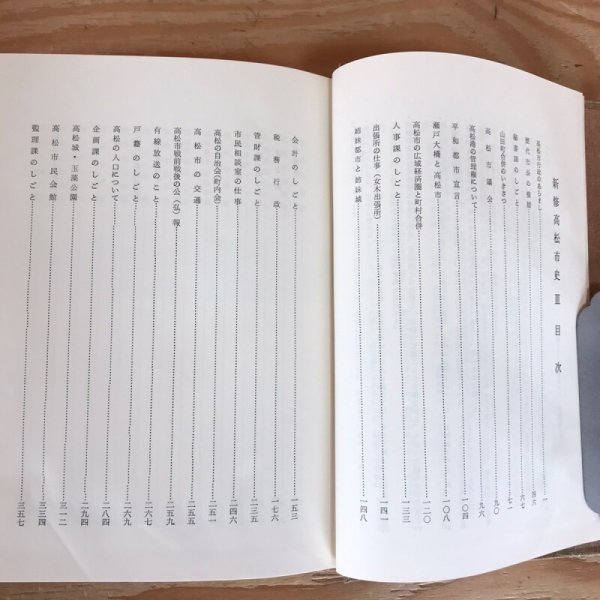 新修高松市史Ⅲ目次
高松市行政のあらまし……一
歴代市長の業績……四六
秘書課のしごと……六七
山田町合併のいきさつ……七一
高松市議会……九〇
高松港の管理権について……九六
平和都市宣言……一〇四
瀬戸大橋と高松市……一〇八
高松市の広域経済圏と町村合併……一二〇
人事課のしごと……一三三
出張所の仕事(女木出張所)……一四一
姉妹都市と姉妹城……一四八
会計のしごと……一五三
税務行政……一七六
管財課のしごと……二三五
市民相談室の仕事……二四六
高松の自治会(町内会)……二五一
高松市の交通……二五五
高松市戦前戦後の公(弘)報……二五九
有線放送のこと……二六七
戸籍のしごと……二六九
高松の人口について……二八四
企画課のしごと……二九四
高松城・玉藻公園……三一二
高松市民会館……三三四
監理課のしごと……三五七